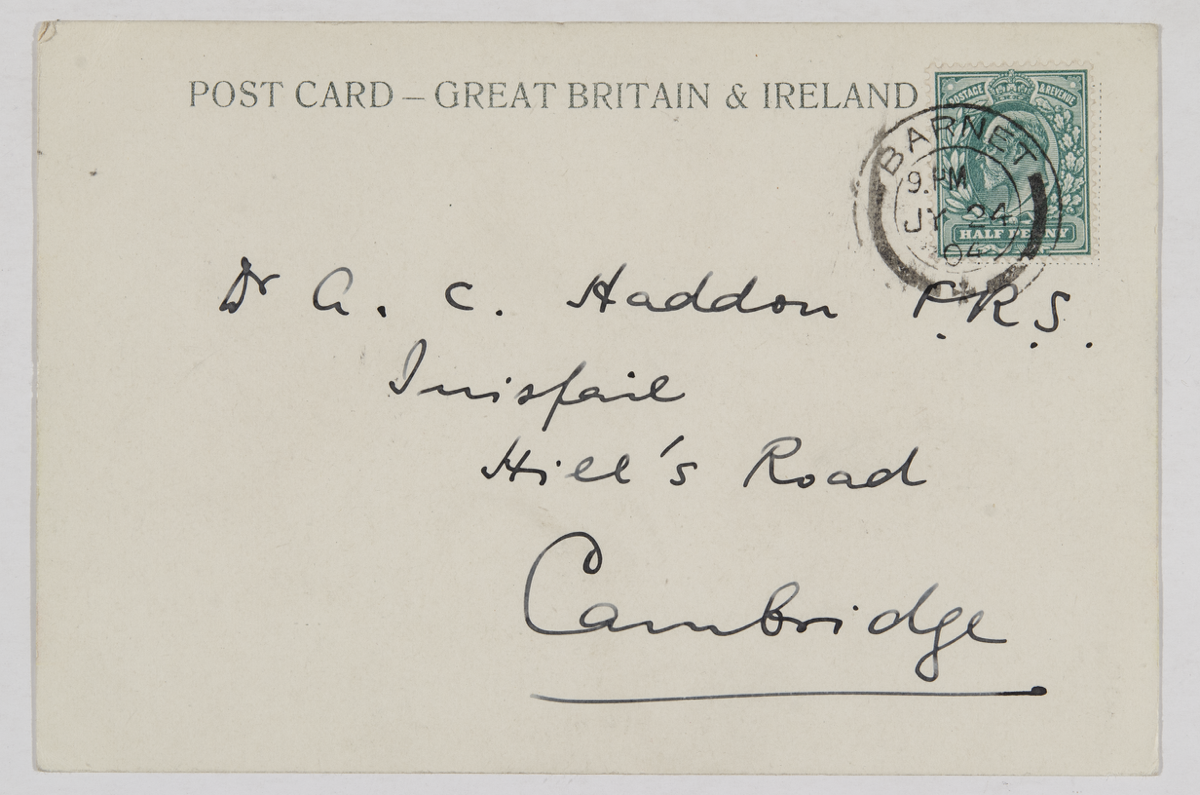 POST CARD – GREAT BRITAIN & IRELAND
POSTAGE & REVENUE
HALF PENNY
BARNET
9. PM
JY 24
04
Dr A. C. Haddon F.R.S.
Inisfail
Hill's Road
Cambridge